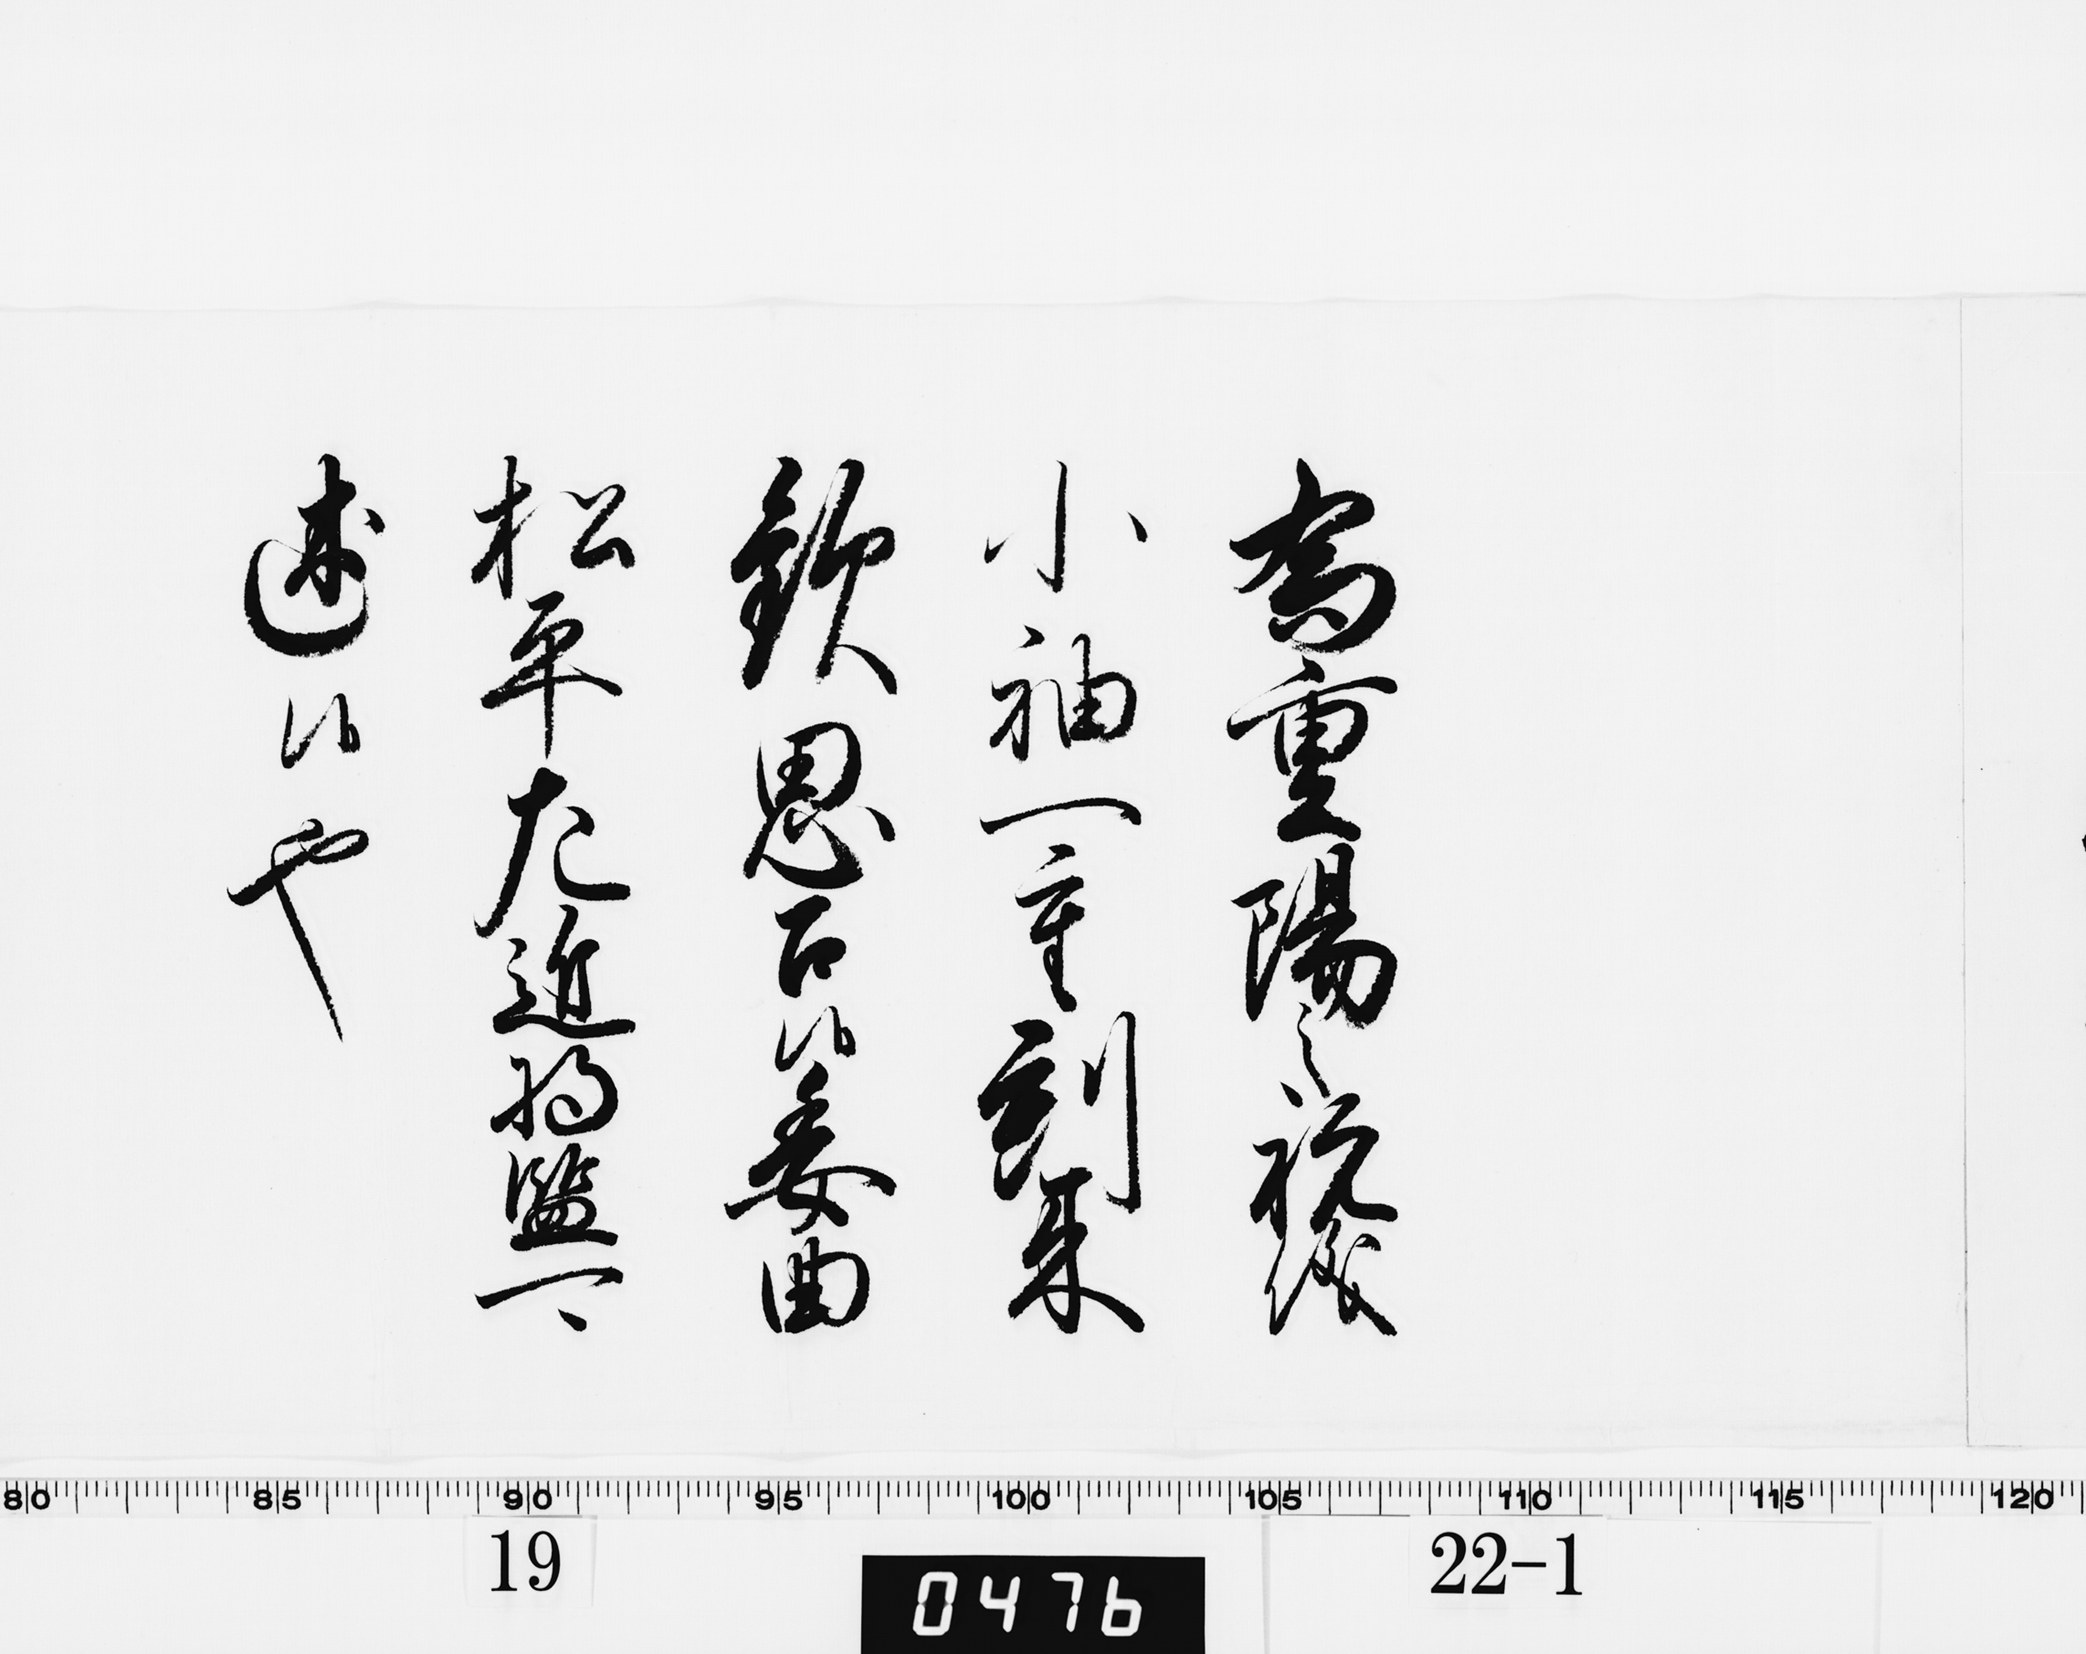 為重陽之祝儀
小袖一重到来
歓思召候委曲
松平左近将監可
述候也
80 85 90 95 100 105 110 115 120
19
0476
22-1